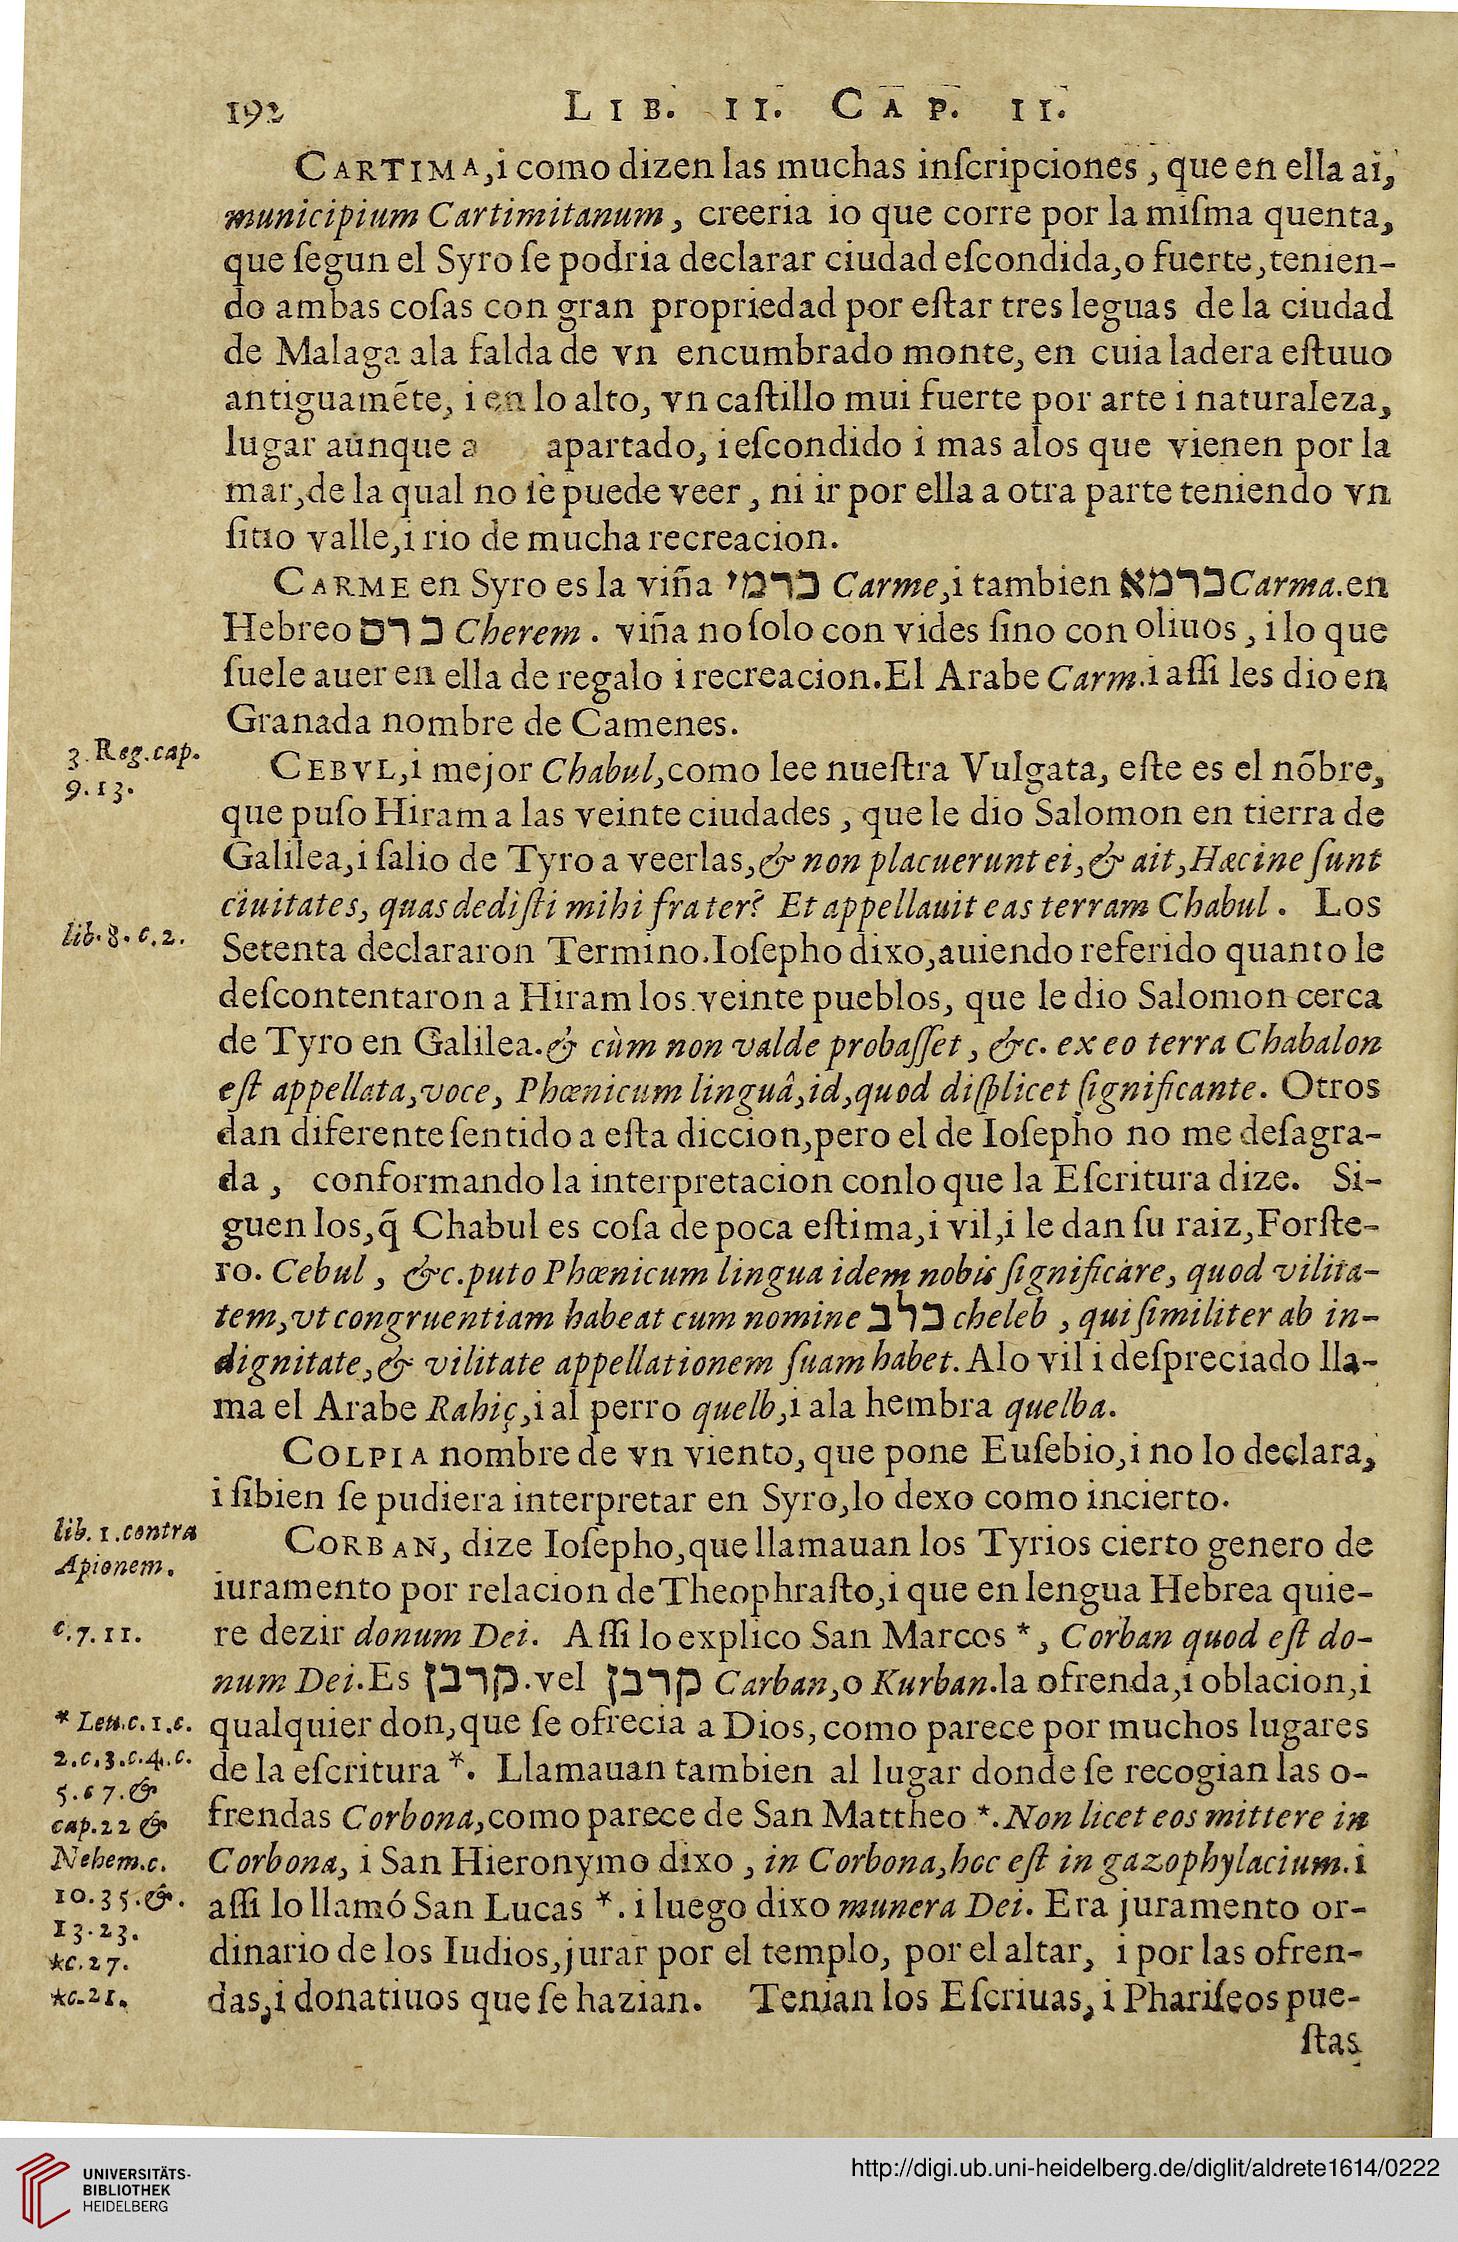 192
LIB. II. CAP. II.
CARTIMA,i como dizen las muchas inſcripciones, que en ella ai,
municipium Cartimitanum, creeria io que corre por la miſma quenta,
que ſegun el Syro ſe podria declarar ciudad eſcondida,o fuerte,tenien-
do ambas coſas con gran propriedad por eſtar tres leguas de la ciudad
de Malaga ala falda de vn encumbrado monte, en cuia ladera eſtuuo
antiguamẽte, i en lo alto, vn caſtillo mui fuerte por arte i naturaleza,
lugar aunque a apartado, i eſcondido i mas alos que vienen por la
mar,de la qual no ſe puede veer, ni ir por ella a otra parte teniendo vn
ſitio valle,i rio de mucha recreacion.
CARME en Syro es la viña כרמי Carme,i tambien כרמא Carma.en
Hebreo כרם Cherem. viña no ſolo con vides ſino con oliuos, i lo que
ſuele auer en ella de regalo i recreacion.El Arabe Carm.i aſſi les dio en
Granada nombre de Camenes.
3. Reg.cap.
9.13.
CEBVL,i mejor Chabul,como lee nueſtra Vulgata, eſte es el nõbre,
que puſo Hiram a las veinte ciudades, que le dio Salomon en tierra de
Galilea,i ſalio de Tyro a veerlas,& non placuerunt ei,& ait,Hæcine ſunt
ciuitates, quas dediſti mihi frater? Et appellauit eas terram Chabul. Los
lib.8.c.2.
Setenta declararon Termino.Ioſepho dixo,auiendo referido quanto le
deſcontentaron a Hiram los veinte pueblos, que le dio Salomon cerca
de Tyro en Galilea.& cùm non valde probaſſet, &c. ex eo terra Chabalon
eſt appellata,voce, Phœnicum linguâ,id,quod diſplicet ſignificante. Otros
dan diferente ſentido a eſta diccion,pero el de Ioſepho no me deſagra-
da, conformando la interpretacion conlo que la Eſcritura dize. Si-
guen los,q̃ Chabul es coſa de poca eſtima,i vil,i le dan ſu raiz,Forſte-
ro. Cebul, &c.puto Phœnicum lingua idem nobis ſignificàre, quod vilita-
tem,vt congruentiam habeat cum nomine כלב cheleb, qui ſimiliter ab in-
dignitate,& vilitate appellationem ſuam habet. Alo vil i deſpreciado lla-
ma el Arabe Rahiç,i al perro quelb,i ala hembra quelba.
COLPIA nombre de vn viento, que pone Euſebio,i no lo declara,
i ſibien ſe pudiera interpretar en Syro,lo dexo como incierto.
lib. 1.contra
Apionem.
CORBAN, dize Ioſepho,que llamauan los Tyrios cierto genero de
iuramento por relacion de Theophraſto,i que en lengua Hebrea quie-
c.7.11.
re dezir donum Dei. Aſſi lo explico San Marcos *, Corban quod eſt do-
num Dei.Es קרבן.vel קרבן Carban,o Kurban.la ofrenda,i oblacion,i
* Leu.c.1.c.
2.c.3.c.4.c.
5.67.&
cap.22 &
Nehem.c.
10.35.&.
13.23.
*c.27.
*c.21.
qualquier don,que ſe ofrecia a Dios,como parece por muchos lugares
de la eſcritura *. Llamauan tambien al lugar donde ſe recogian las o-
frendas Corbona,como parece de San Mattheo *.Non licet eos mittere in
Corbona, i San Hieronymo dixo, in Corbona,hoc eſt in gazophylacium.i
aſſi lo llamó San Lucas *. i luego dixo munera Dei. Era juramento or-
dinario de los Iudios,jurar por el templo, por el altar, i por las ofren-
das,i donatiuos que ſe hazian. Tenian los Eſcriuas, i Phariſeos pue-
ſtas
UNIVERSITÄTS-
BIBLIOTHEK
HEIDELBERG
http://digi.ub.uni-heidelberg.de/diglit/aldrete1614/0222